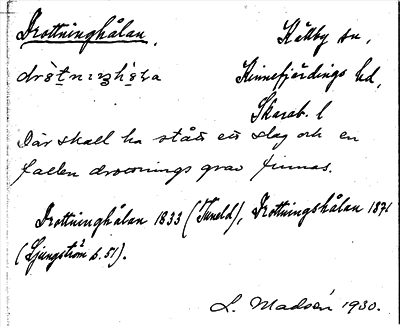 Drottninghålan. Källby sn,
Kinnefjärdings hd,
Skarab. l
Där skall ha stått ett slag och en
fallen drottnings grav finnas.
Drottninghålan 1833 (Tuneld), Drottningshålan 1871
(Ljungström s. 51).
L. Madsén 1930.